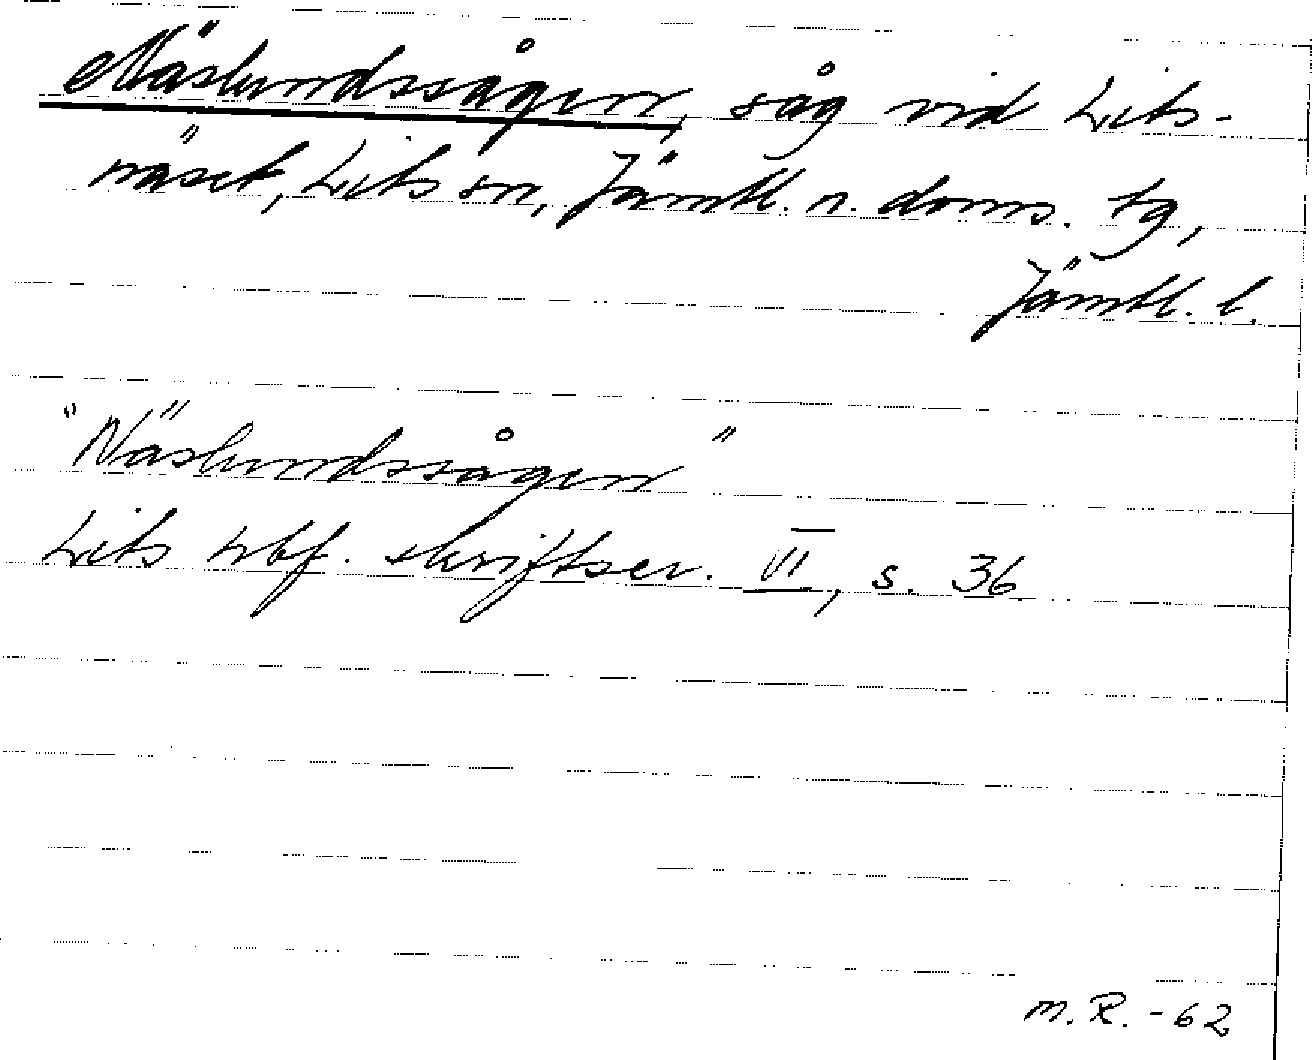 Näslundssågen, såg vid Lits-
näset, Lits sn, Jämtl. n. doms. tg,
Jämtl. l.
"Näslundssågen"
Lits hbf. skriftser. VI, s. 36
M.R. -62